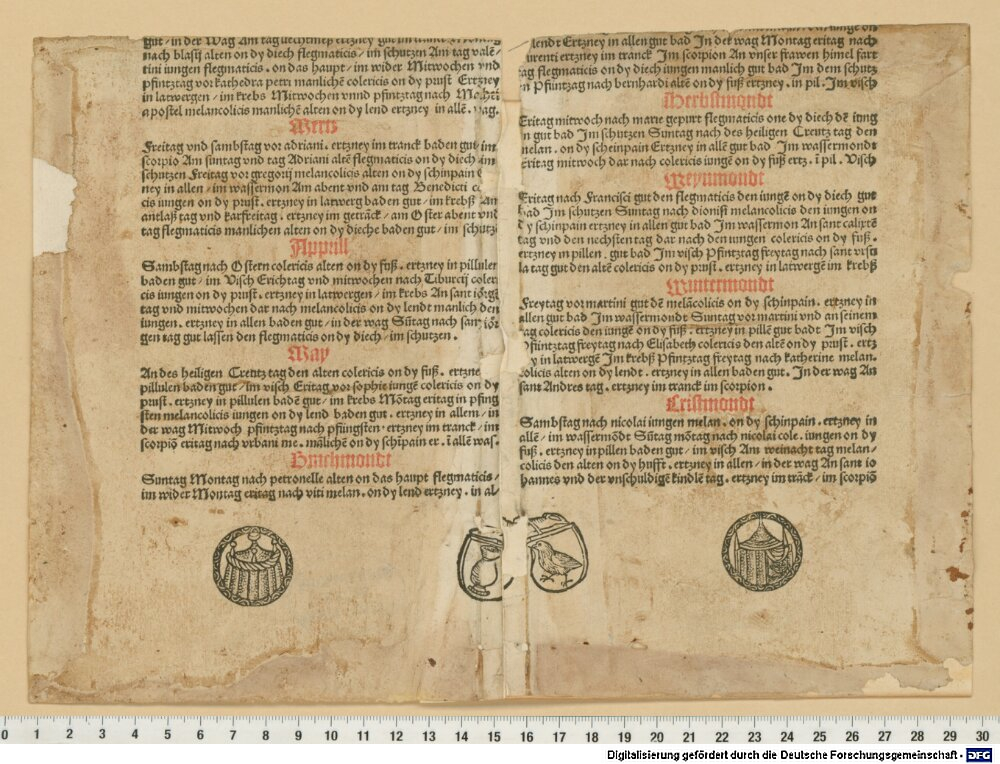 gut / in der Wag Am tag liechtmeß ertzney gut im tranck
nach blasij alten on dy diech flegmaticis / im schutzen Am tag valē/
tini iungen flegmaticis . on das haupt / im wider Mitwochen vnd
pfintztag vor kathedra petri manlichē colericis on dy prust Ertzney
in latwergen / im krebs Mitwochen vnnd pfintztag nach
apostel melancolicis manlichē alten on dy lend ertzney in allē . wag.
Mertz
Freitag vnd sambstag vor adriani . ertzney im tranck baden gut / im
scorpio Am suntag vnd tag Adriani altē flegmaticis on dy diech / im
schutzen Freitag vor gregorij melancolicis alten on dy schinpain
ney in allen / im wassermon Am abent vnd am tag Benedicti
cis iungen on dy prust . ertzney in latwerg baden gut / im krebß An
antlaß tag vnd karfreitag . ertzney im getrāck / am Oster abent vnd
tag flegmaticis manlichen alten on dy dieche baden gut / im schutz
Appull
Sambstag nach Ostern colericis alten on dy fuß . ertzney in pillulen
baden gut / im Visch Erichtag vnd mitwochen nach Tiburcij coleri
cis iungen on dy prust . ertzney in latwergen / im krebs An sant iörgē
tag vnd mitwochen dar nach melancolicis on dy lendt manlich den
iungen . ertzney in allen baden gut / in der wag Sūtag nach sant iör
gen tag gut lassen den flegmaticis on dy diech / im schutzen .
May
An des heiligen Creutz tag den alten colericis on dy fuß . ertzne
pillulen baden gut / im visch Eritag vor sophie iungē colericis on dy
prust . ertzney in pillulen badē gut / im krebs Mōtag eritag in pfing
sten melancolicis iungen on dy lend baden gut . ertzney in allem / in
der wag Mitwoch pfintztag nach pfiingsten . ertzney im tranck / im
scorpiō eritag nach vrbani me . mālichē on dy schīpain er . ī allē was.
Brachmondt
Suntag Montag nach petronelle alten on das haupt flegmaticis /
im wider Montag eritag nach viti melan . on dy lend ertzney . in al/
lendt Ertzney in allen gut bad In der wag Montag eritag nach
urenti ertzney im tranck Im scorpion An vnser frawen himel fart
tag flegmaticis on dy diech iungen manlich gut bad Im dem schutz
n Pfintzag nach bernhardi altē on dy fuß ertzney . in pil . Im visch
Herbstmondt
Eritag mitwoch nach marie gepurt flegmaticis one dy diech dē iung
n gut bad Im schutzen Suntag nach des heiligen Creutz tag den
melan . on dy scheinpain Ertzney in allē gut bad Im wassermondt
Eritag mitwoch dar nach colericis iungē on dy fuß ertz . ī pil . Visch
Weynmondt
Eritag nach Francisci gut den flegmaticis den iungē on dy diech gut
bad Im schutzen Suntag nach dionisi melancolicis den iungen on
dy schinpain ertzney in allen gut bad Im wassermon An sant calixtē
tag vnd den nechsten tag dar nach den iungen colericis on dy fuß .
ertzney in pillen . gut bad Im visch Pfintztag freytag nach sant vrsu
la tag gut den altē colericis on dy prust . ertzney in latwergē im krebß
Wintermondt
Freytag vor martini gut dē melācolicis on dy schinpain . ertzney in
allen gut bad Im wassermondt Suntag vor martini vnd an seinem
tag colericis den iungē on dy fuß . ertzney in pillē gut badt Im visch
Pfintztag freytag nach Elisabeth colericis den altē on dy prust . ertz
y in latwergē Im krebß Pfintztag freytag nach katherine melan.
colicis alten on dy lendt . ertzney in allen baden gut . In der wag An
sant Andres tag . ertzney im tranck im scorpion .
Cristmondt
Sambstag nach nicolai iungen melan . on dy schinpain . ertzney in
allē / im wassermōdt Sūtag mōtag nach nicolai cole . iungen on dy
fuß . ertzney in pillen baden gut / im visch Am weinacht tag melan/
colicis den alten on dy hufft . ertzney in allen / in der wag An sant io
hannes vnd der vnschuldigē kindlē tag . ertzney im trāck / im scorpiō
0 1 2 3 4 5 6 7 8 9 10 11 12 13 14 15 16 17 18 19 20 21 22 23 24 25 26 27 28 29 30
Digitalisierung gefördert durch die Deutsche Forschungsgemeinschaft - DFG